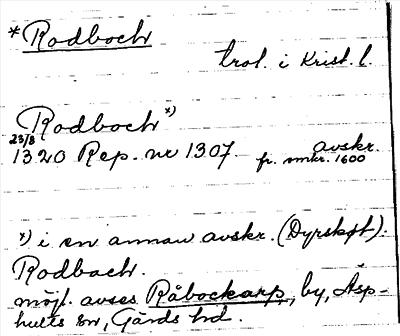 *Rodboch
trol. i Krist. l.
Rodboch *)
23/8 avskr.
1320 Rep. nr 1307. fr. omkr. 1600
*) i en annan avskr. (Dyrskøt).
Rodbach.
möjl. avses Råbockarp, by, Äsp-
hults sn, Gärds hd.